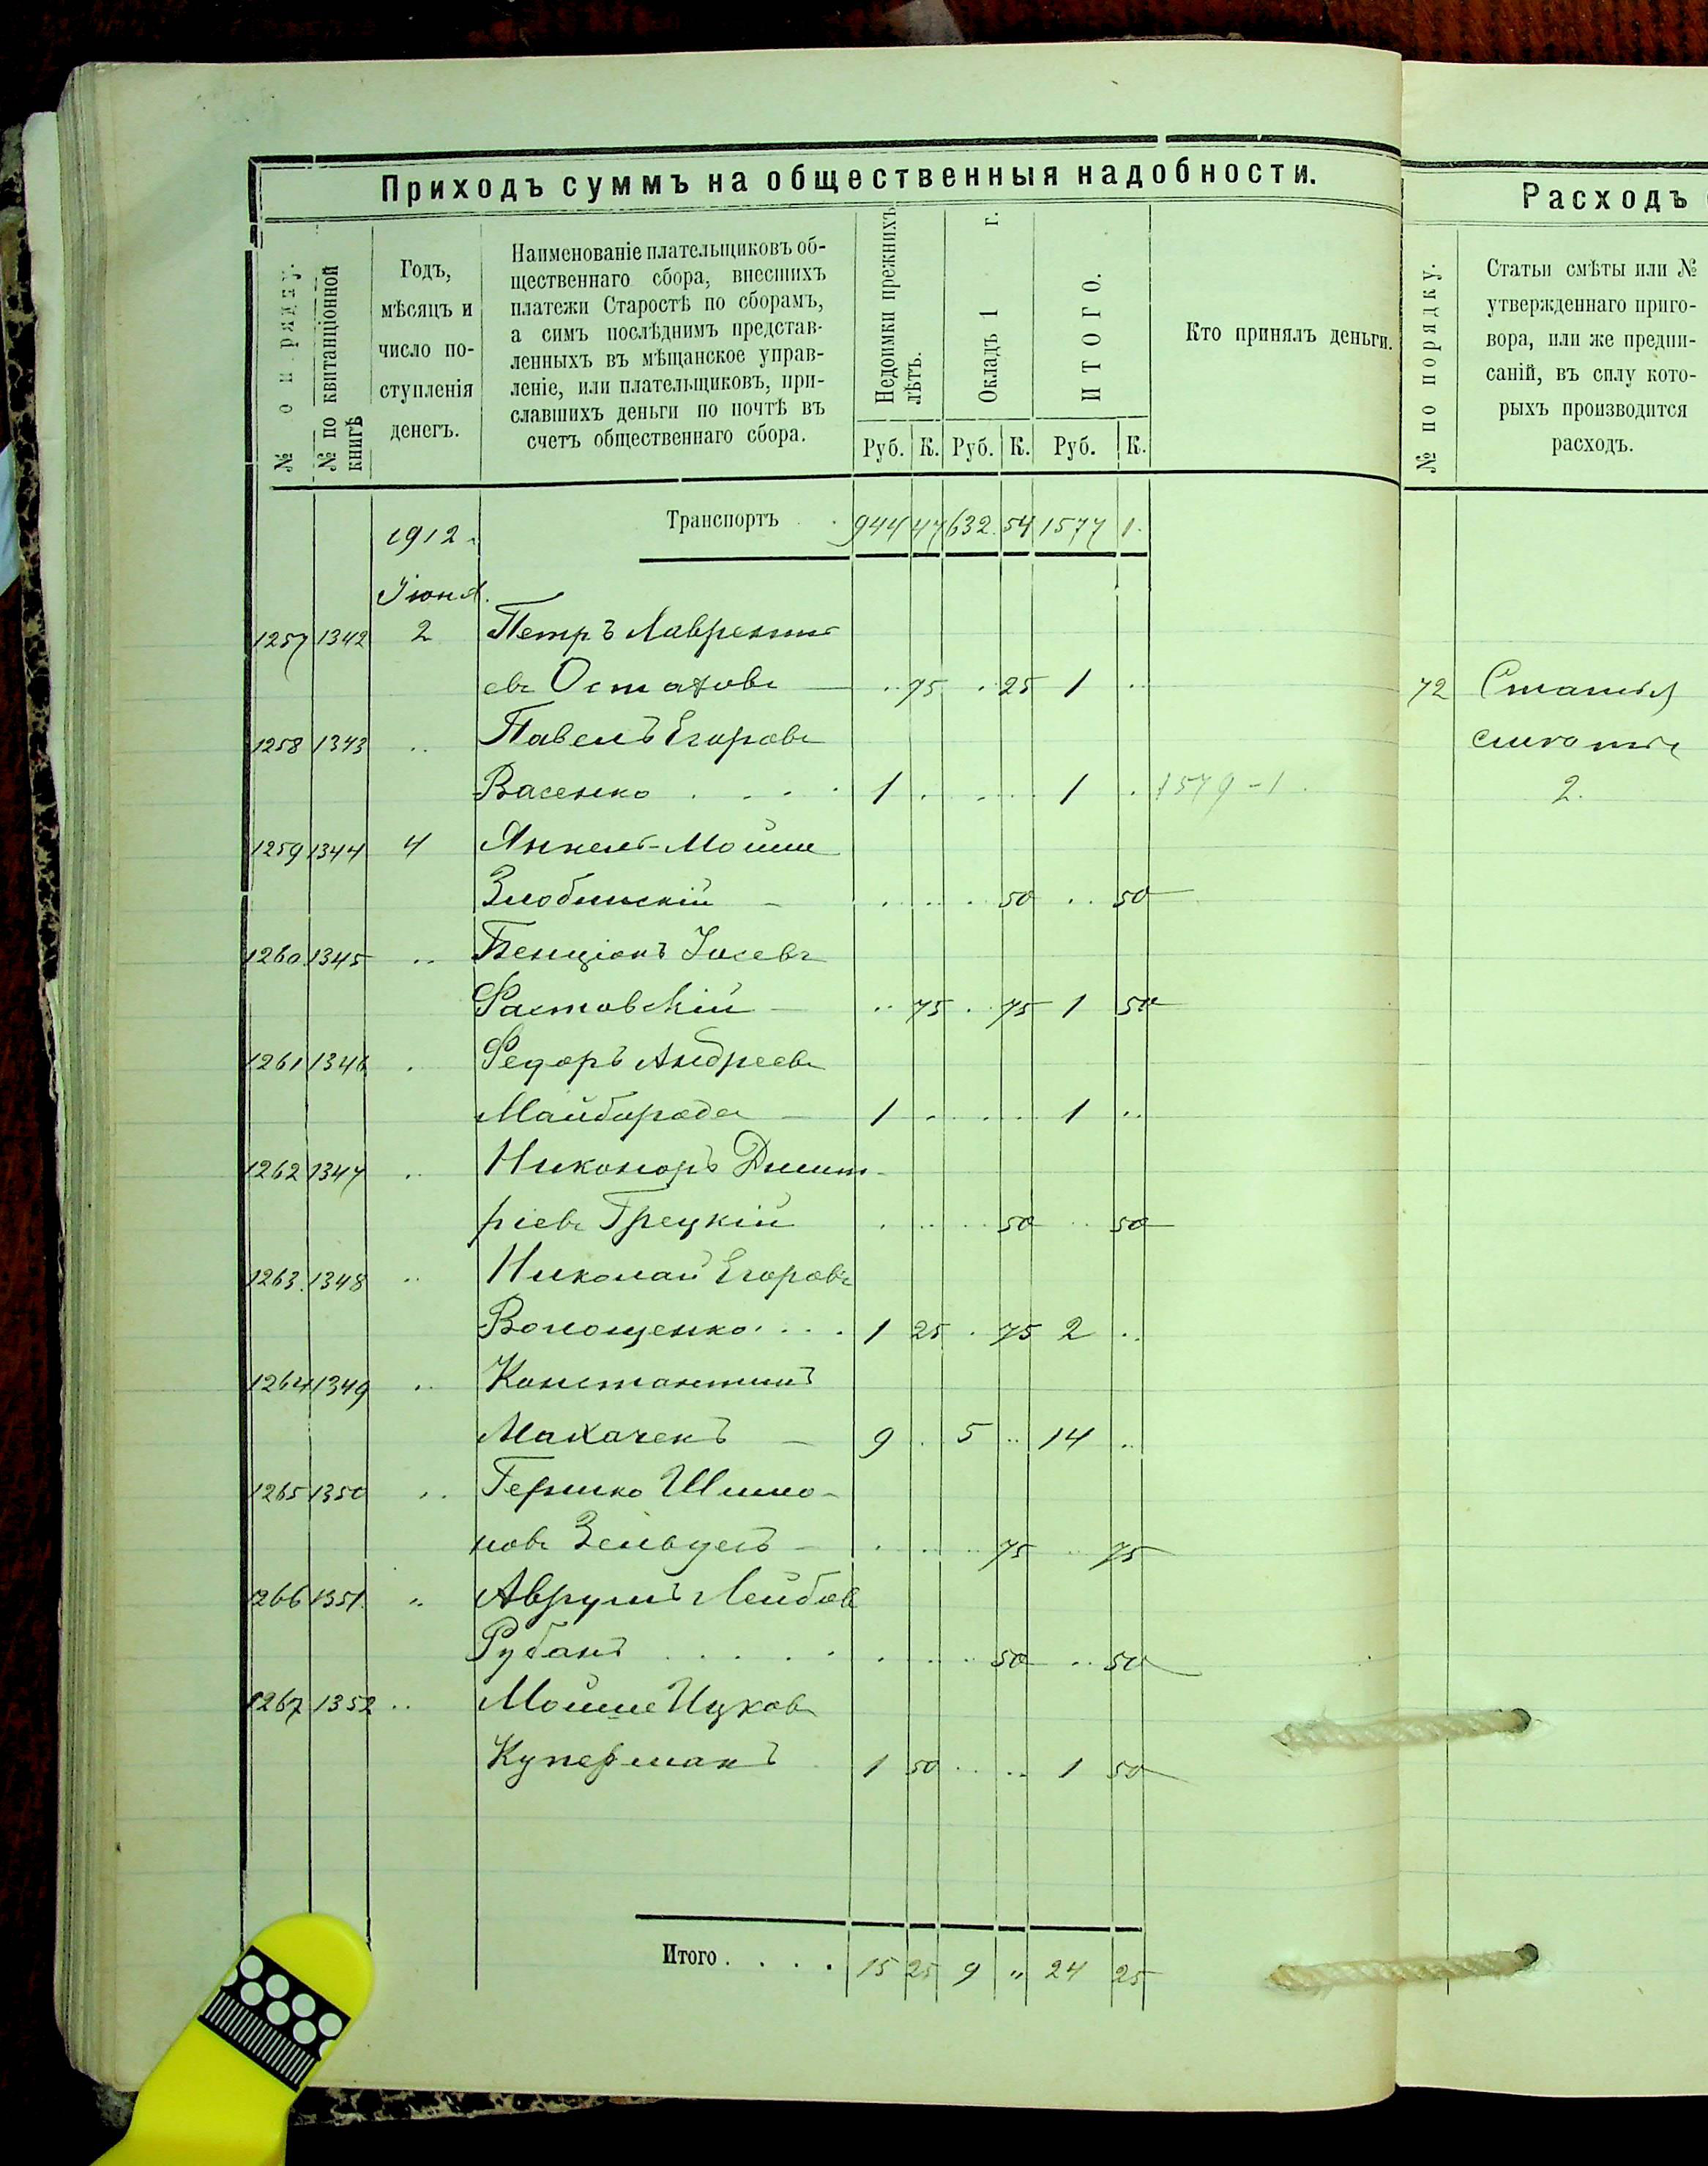 Приходъ суммъ на общественныя надобности.
№ по ряду.
№ по квитанціонной книгѣ
Годъ,
мѣсяцъ и
число по-
ступленія
денегъ.
Наименованіе плательщиковъ об-
щественнаго сбора, внесшихъ
платежи Старостѣ по сборамъ,
а симъ послѣднимъ представ-
ленныхъ въ мѣщанское управ-
леніе, или плательщиковъ, при-
славшихъ деньги по почтѣ въ
счетъ общественнаго сбора.
Недоимки прежнихъ лѣтъ.
Окладъ 1 г.
ИТОГО.
Руб. К. Руб. К. Руб. К.
Кто принялъ деньги.
1912. Транспортъ . . 944 47 632 54 1577 1.
Іюня.
1257 1342 2 Петръ Лавренть
евъ Остаховъ — .. 75 .. 25 1 ..
1258 1343 .. Павелъ Егоровъ
Васенко . . . . 1 . .. .. 1 . 1579-1.
1259 1344 4 Янкель-Мойше
Злобинскій — . .. . 50 .. 50
1260 1345 .. Бенціонъ Іосевъ
Фастовскій — .. 75 . 75 1 50
1261 1346 . Федоръ Андреевъ
Майборода — 1 . .. .. 1 ..
1262 1347 .. Никоноръ Димит-
ріевъ Грецкій . .. .. 50 .. 50
1263. 1348 .. Николай Егоровъ
Волощенко. . . . 1 25 . 75 2 ..
1264 1349 .. Константинъ
Махачекъ — 9 . 5 .. 14 ..
1265 1350 .. Гершко Шимо-
новъ Зельдесъ — . .. .. 75 .. 75
1266 1351. .. Аврумъ Лейбов
Рубанъ . . . . . . .. .. 50 .. 50
1267 1352 .. Мойше Ицковъ
Куперманъ . 1 50 .. .. 1 50
Итого. . . . 15 25 9 " 24 25
Расходъ
№ по порядку.
Статьи смѣты или №
утвержденнаго приго-
вора, или же предпи-
саній, въ силу кото-
рыхъ производится
расходъ.
72 Статья
смѣты
2.